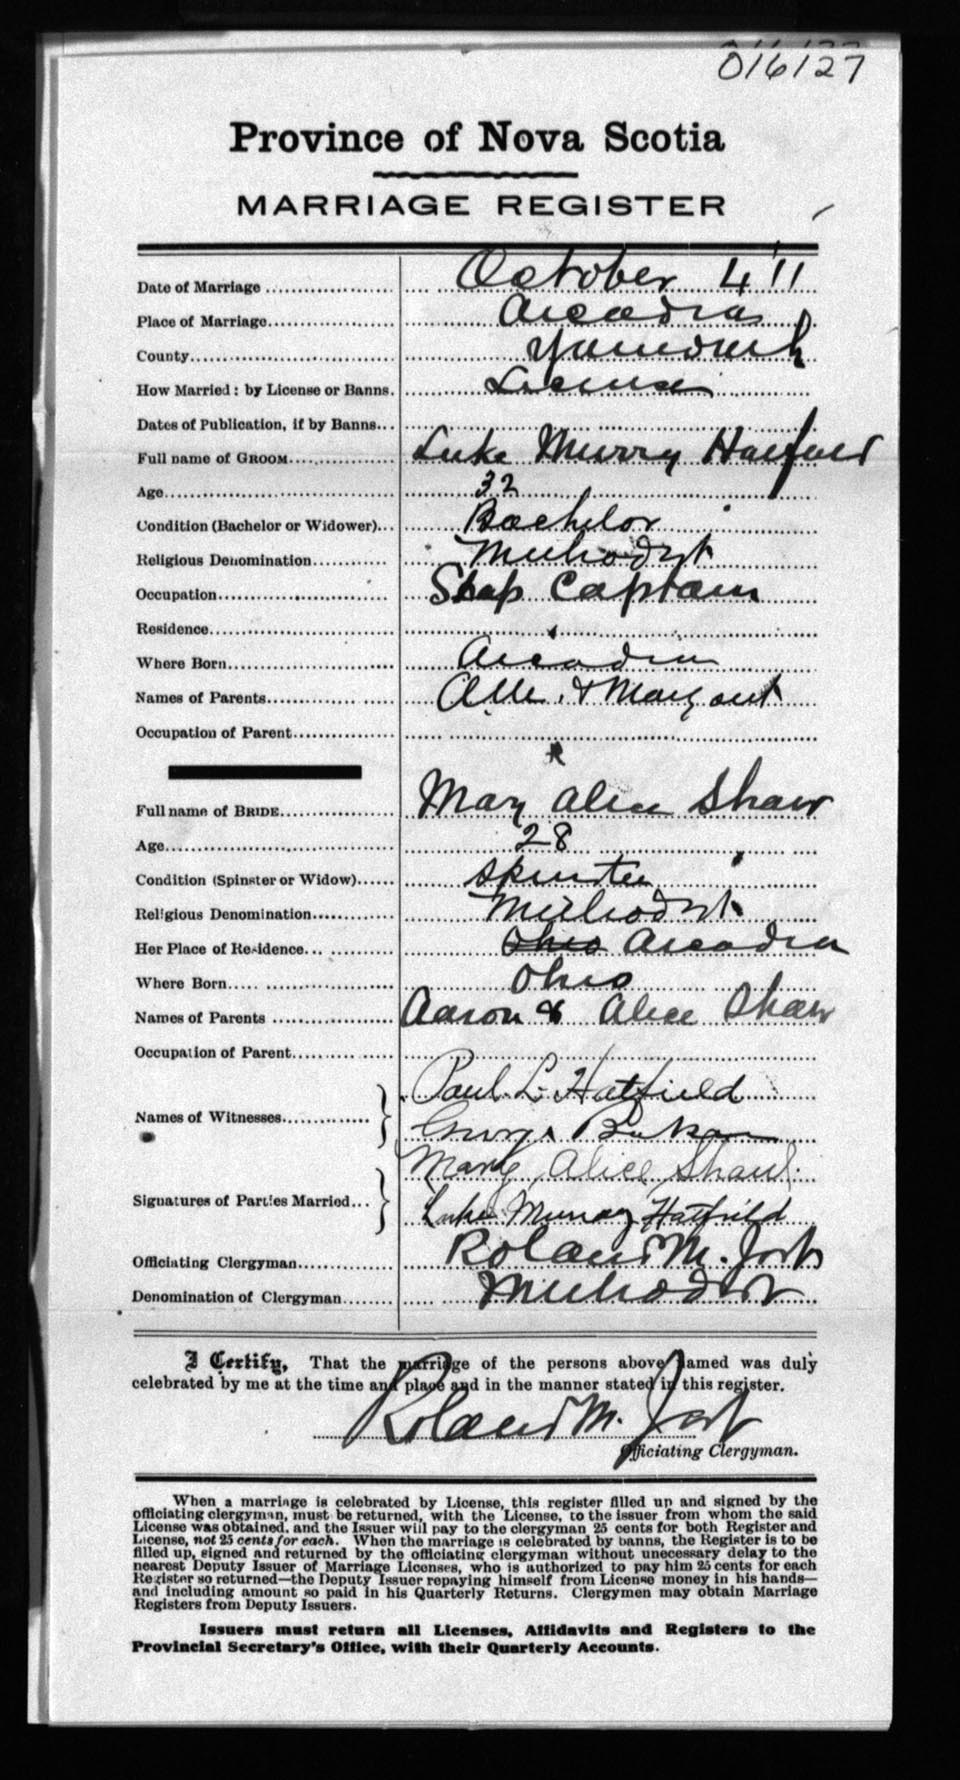 016127
Province of Nova Scotia
MARRIAGE REGISTER
Date of Marriage October 4 '11
Place of Marriage Arcadia
County Yarmouth
How Married: by License or Banns. License
Dates of Publication, if by Banns
Full name of GROOM Luke Murry Hatfield
Age 32
Condition (Bachelor or Widower) Bachelor
Religious Denomination Methodist
Occupation Ship Captain
Residence
Where Born Arcadia
Names of Parents & Margaret
Occupation of Parent
Full name of BRIDE Mary Alice Shaw
Age 28
Condition (Spinster or Widow) Spinster
Religious Denomination Methodist
Her Place of Residence Ohio Arcadia
Where Born Ohio
Names of Parents Aaron & Alice Shaw
Occupation of Parent
Paul L. Hatfield
Names of Witnesses George
Mary Alice Shaw
Signatures of Parties Married Luke Murray Hatfield
Officiating Clergyman Roland M. Jost
Denomination of Clergyman Methodist
I Certify, That the marriage of the persons above named was duly
celebrated by me at the time and place and in the manner stated in this register.
Roland M. Jost
Officiating Clergyman.
When a marriage is celebrated by License, this register filled up and signed by the
officiating clergyman, must be returned, with the License, to the issuer from whom the said
License was obtained, and the Issuer will pay to the clergyman 25 cents for both Register and
License, not 25 cents for each. When the marriage is celebrated by banns, the Register is to be
filled up, signed and returned by the officiating clergyman without unnecessary delay to the
nearest Deputy Issuer of Marriage Licenses, who is authorized to pay him 25 cents for each
Register so returned—the Deputy Issuer repaying himself from License money in his hands—
and including amount so paid in his Quarterly Returns. Clergymen may obtain Marriage
Registers from Deputy Issuers.
Issuers must return all Licenses, Affidavits and Registers to the
Provincial Secretary's Office, with their Quarterly Accounts.